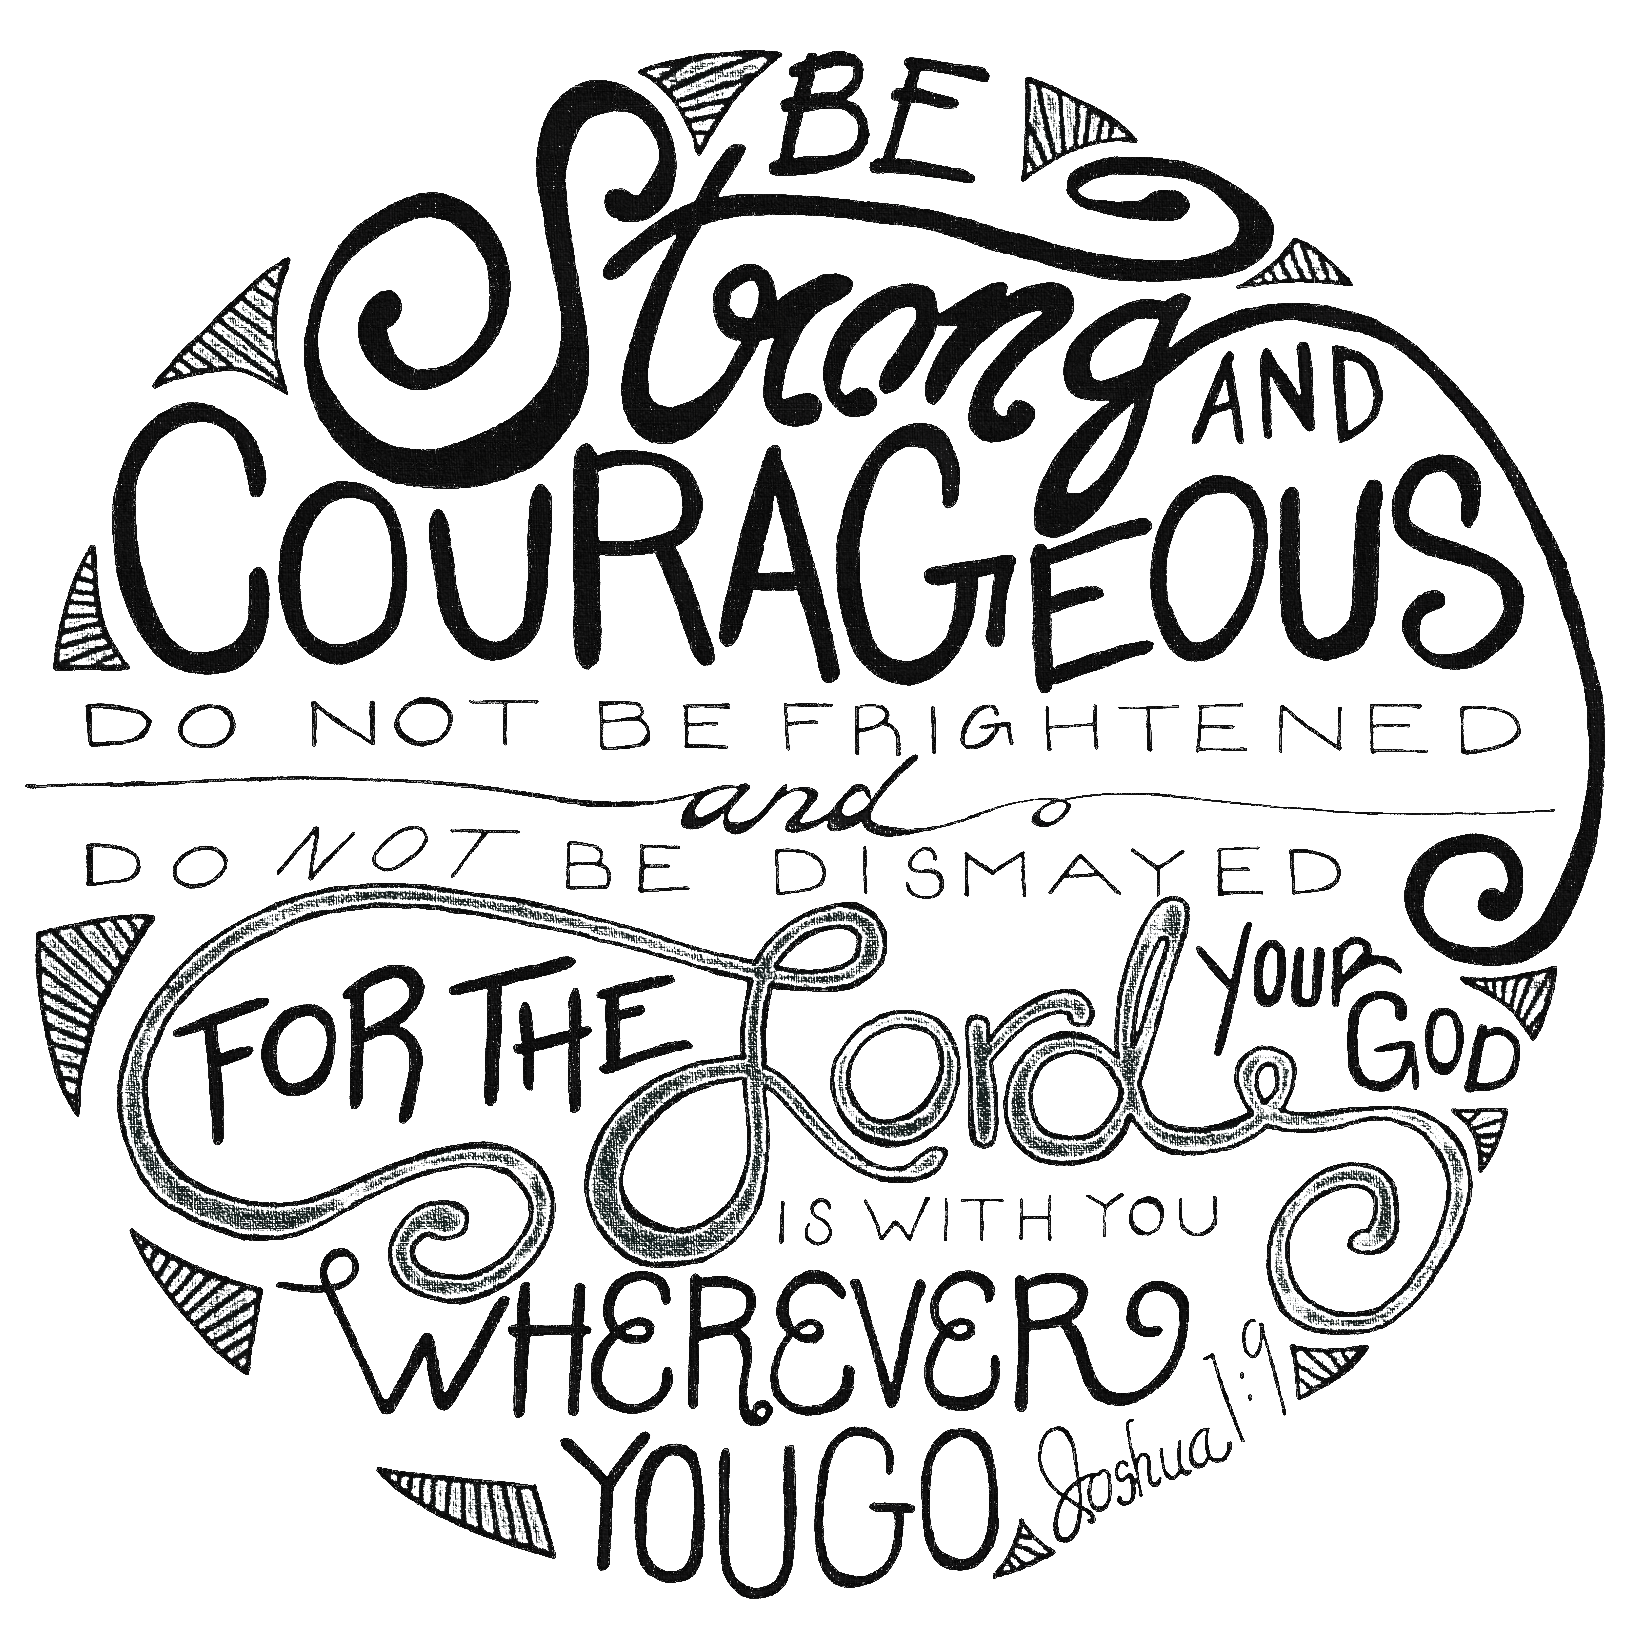 BE
Strong
AND
COURAGEOUS
DO NOT BE FRIGHTENED
and
DO NOT BE DISMAYED
FOR THE Lord YOUR
GOD
IS WITH YOU
WHEREVER
YOU GO
Joshua 1:9